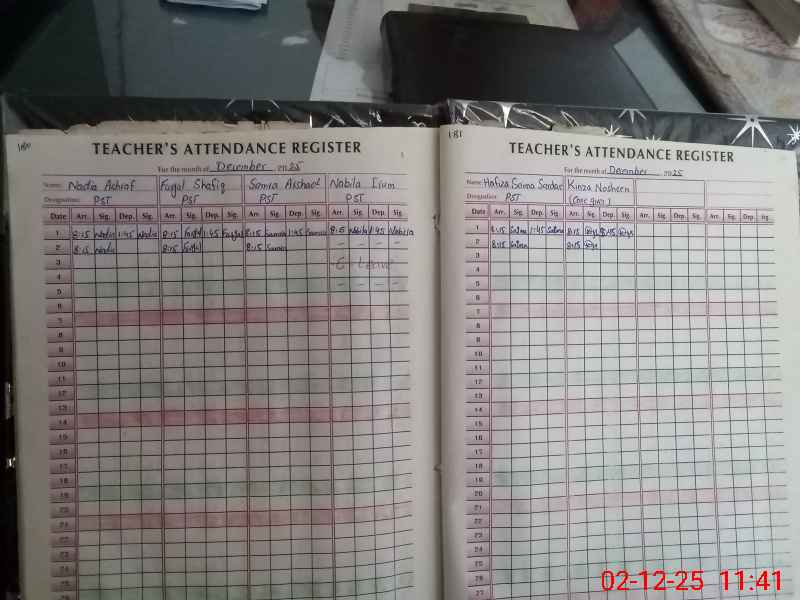 180
TEACHER'S ATTENDANCE REGISTER
For the month of December 2025
Name: Nadia Achraf Fazal Shafiq Samra Arshad Nabila Irum
Designation: PST PST PST PST
Date Arr. Sig. Dep. Sig. Arr. Sig. Dep. Sig. Arr. Sig. Dep. Sig. Arr. Sig. Dep. Sig.
1 8:15 Nadia 1:45 Nadia 8:15 1:45 8:15 Samra 1:45 Samra Nabila 1:45 Nabila
2 8:15 Nadia 8:15 8:15 Samra – – – –
3 Leave
4
5 – – – –
6
7
8
9
10
11
12
13
14
15
16
17
18
19
20
21
22
23
24
25
181
TEACHER'S ATTENDANCE REGISTER
For the month of December 2025
Name: Hafiza Saima Kinza Nosheen
Designation: PST
Date Arr. Sig. Dep. Sig. Arr. Sig. Dep. Sig. Arr. Sig. Dep. Sig. Arr. Sig. Dep. Sig.
1 8:15 1:45 8:15
2 8:15 8:15
3
4
5
6
7
8
9
10
11
12
13
14
15
16
17
18
19
20
21
22
23
24
25
26
27
02-12-25 11:41